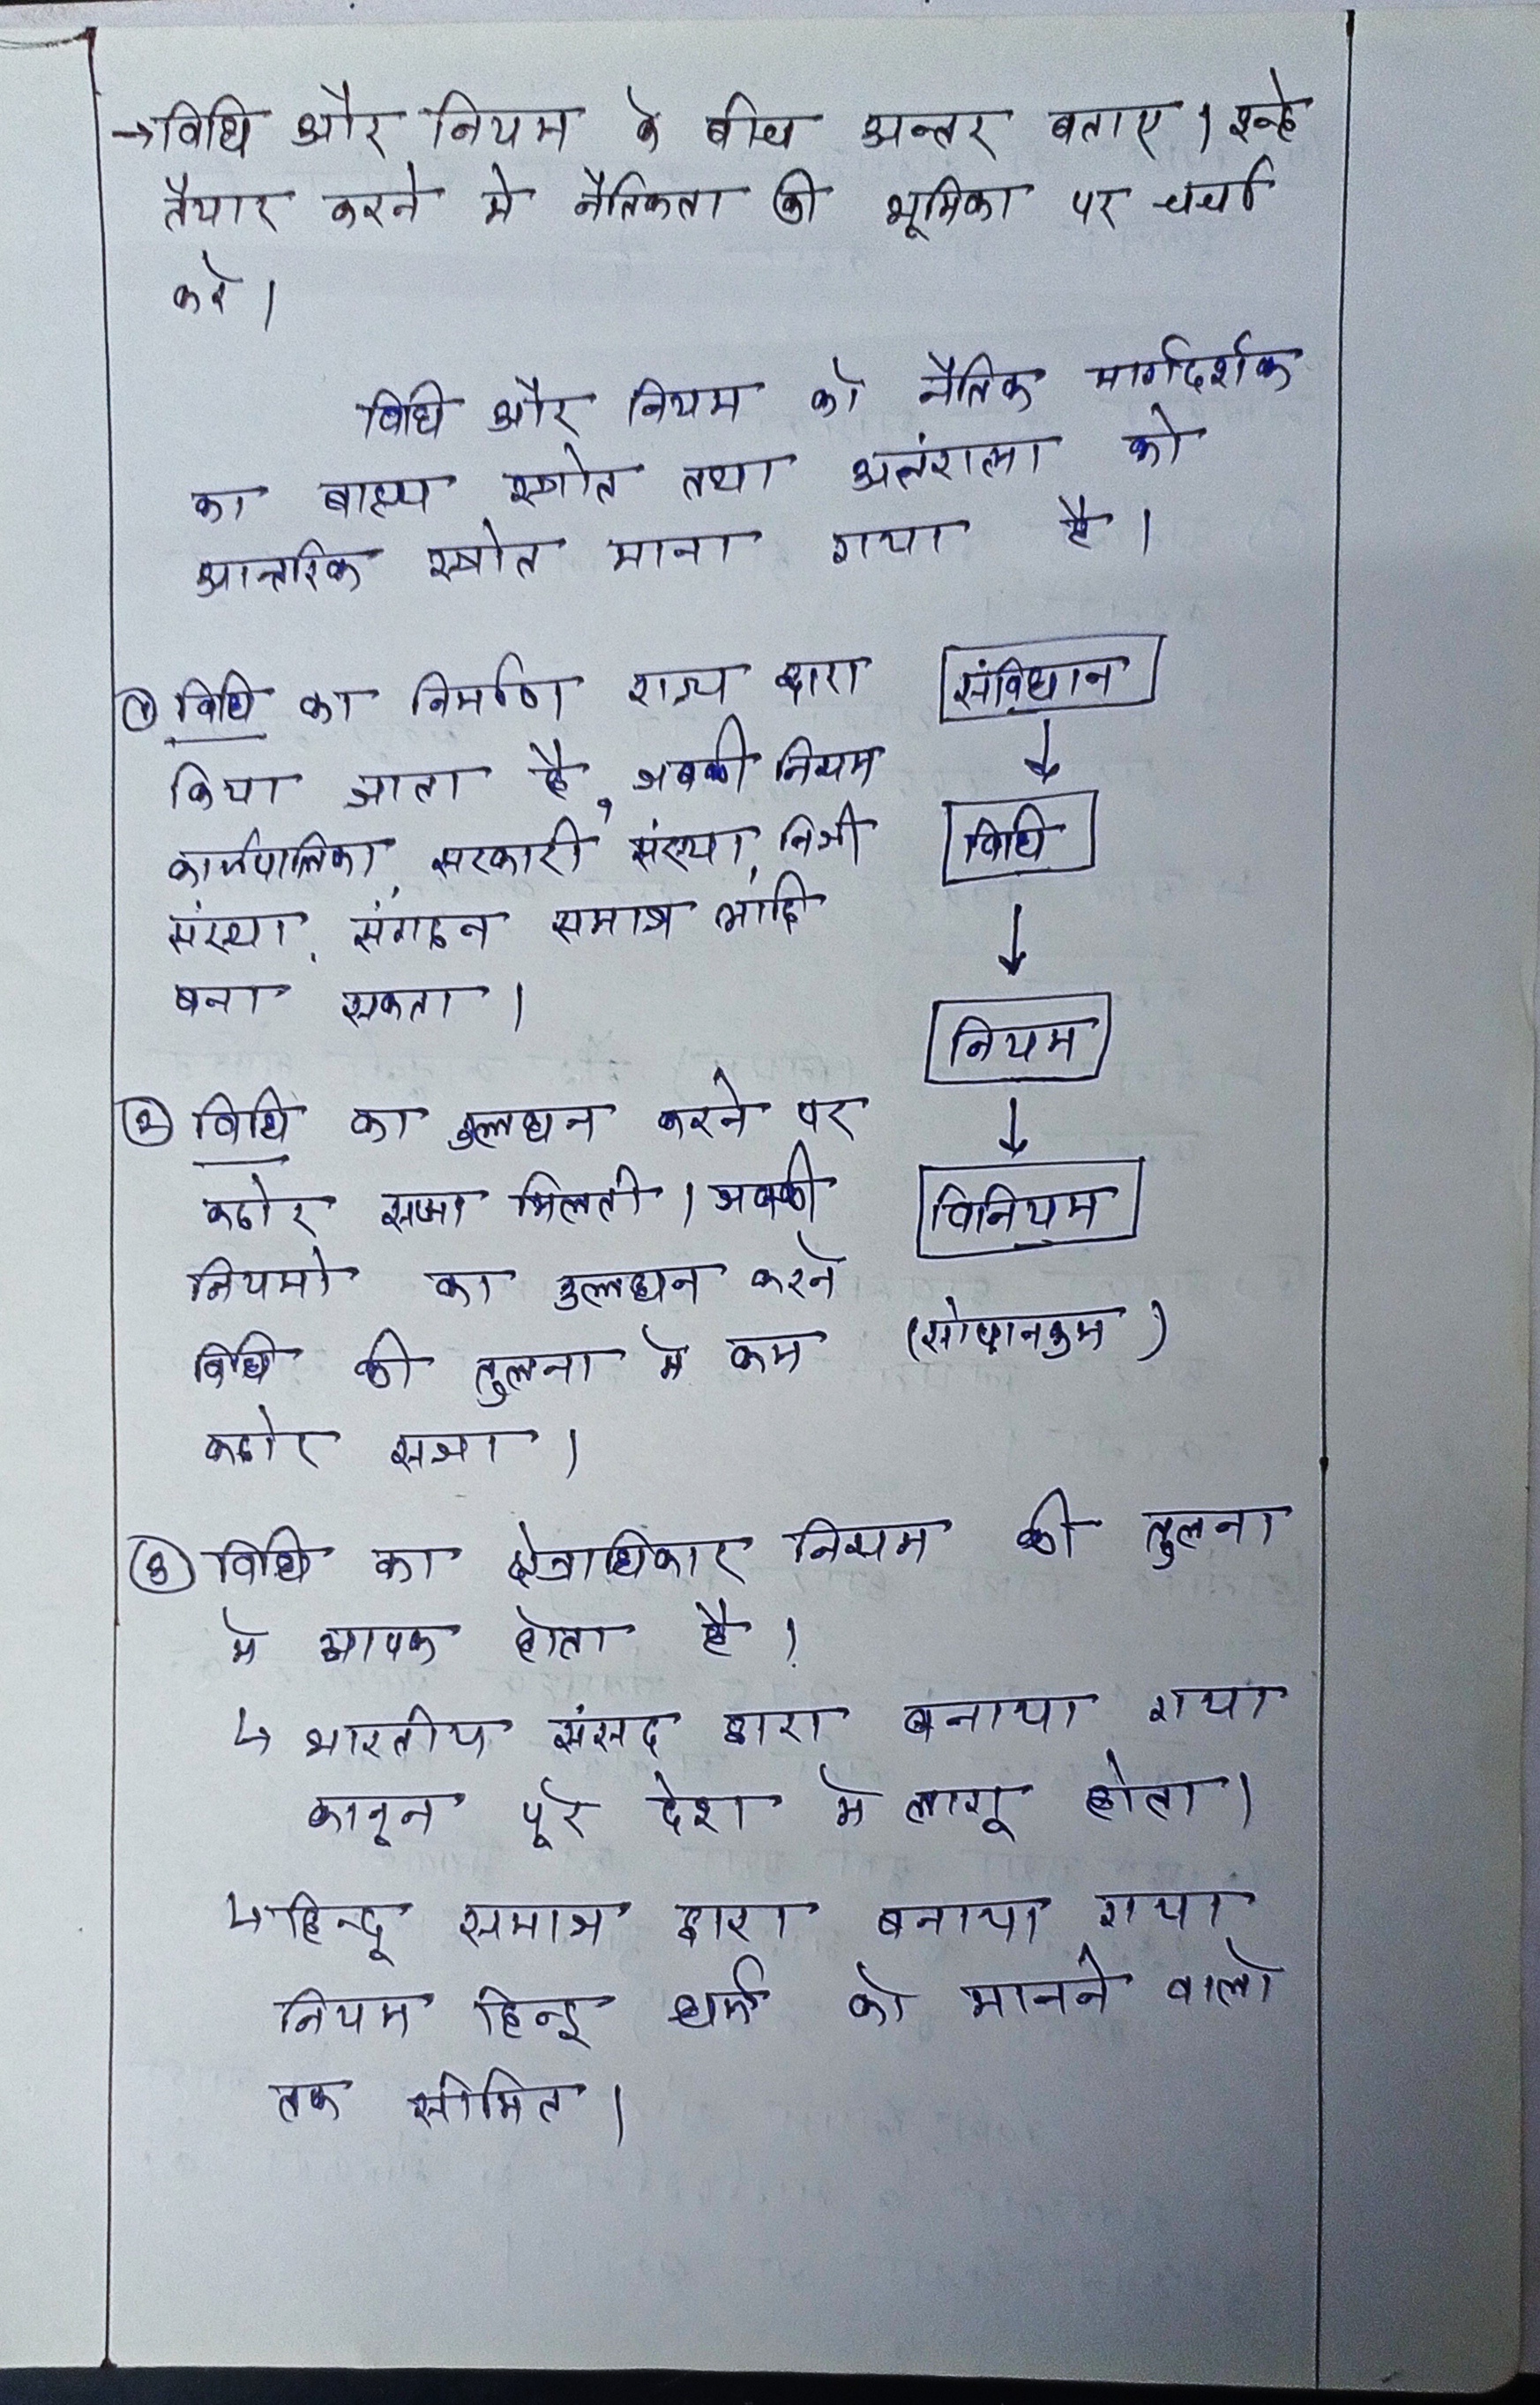 →विधि और नियम के बीच अन्तर बताए। इन्हे
तैयार करने मे नैतिकता की भूमिका पर चर्चा
करे।
विधि और नियम को नैतिक मार्गदर्शक
का बाह्य स्त्रोत तथा अन्तंरात्मा को
आन्तरिक स्त्रोत माना गया है।
① विधि का निर्माण राज्य द्वारा
किया जाता है, जबकी नियम
कार्यपालिका, सरकारी संस्था, निजी
संस्था, संगठन समाज आदि
बना सकता।
संविधान
↓
विधि
↓
नियम
↓
विनियम
(सोपानक्रम)
② विधि का उल्लघन करने पर
कठोर सजा मिलती। जबकी
नियमो का उल्लघन करने
विधि की तुलना मे कम
कठोर सजा।
③ विधि का क्षेत्राधिकार नियम की तुलना
मे व्यापक होता है।
↳ भारतीय संसद द्वारा बनाया गया
कानून पूरे देश मे लागू होता।
↳ हिन्दू समाज द्वारा बनाया गया
नियम हिन्दू धर्म को मानने वालो
तक सीमित।